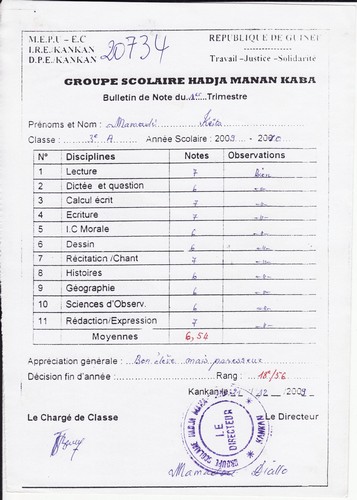 M.E.P.U – E.C
I.R.E./KANKAN
D.P.E./KANKAN
20734
REPUBLIQUE DE GUINEE
Travail –Justice –Solidarité
GROUPE SCOLAIRE HADJA MANAN KABA
Bulletin de Note du 1er Trimestre
Prénoms et Nom : Mamadi Keita
Classe : 3e A Année Scolaire : 2009 - 2010
N° Disciplines Notes Observations
1 Lecture 7 Bien
2 Dictée et question 6 -"-
3 Calcul écrit 7 -"-
4 Ecriture 7 -"-
5 I.C Morale 6 -"-
6 Dessin 6 -"-
7 Récitation /Chant 7 -"-
8 Histoires 6 -"-
9 Géographie 6 -"-
10 Sciences d'Observ. 6 -"-
11 Rédaction/Expression 7 -"-
Moyennes 6,54
Appréciation générale : Bon élève mais paresseux
Décision fin d'année : Rang : 18e/56
Kankan 12 2009
Le Chargé de Classe
Le Directeur
GROUPE SCOLAIRE HADJA MANAN KABA
LE DIRECTEUR
* KANKAN *
Diallo